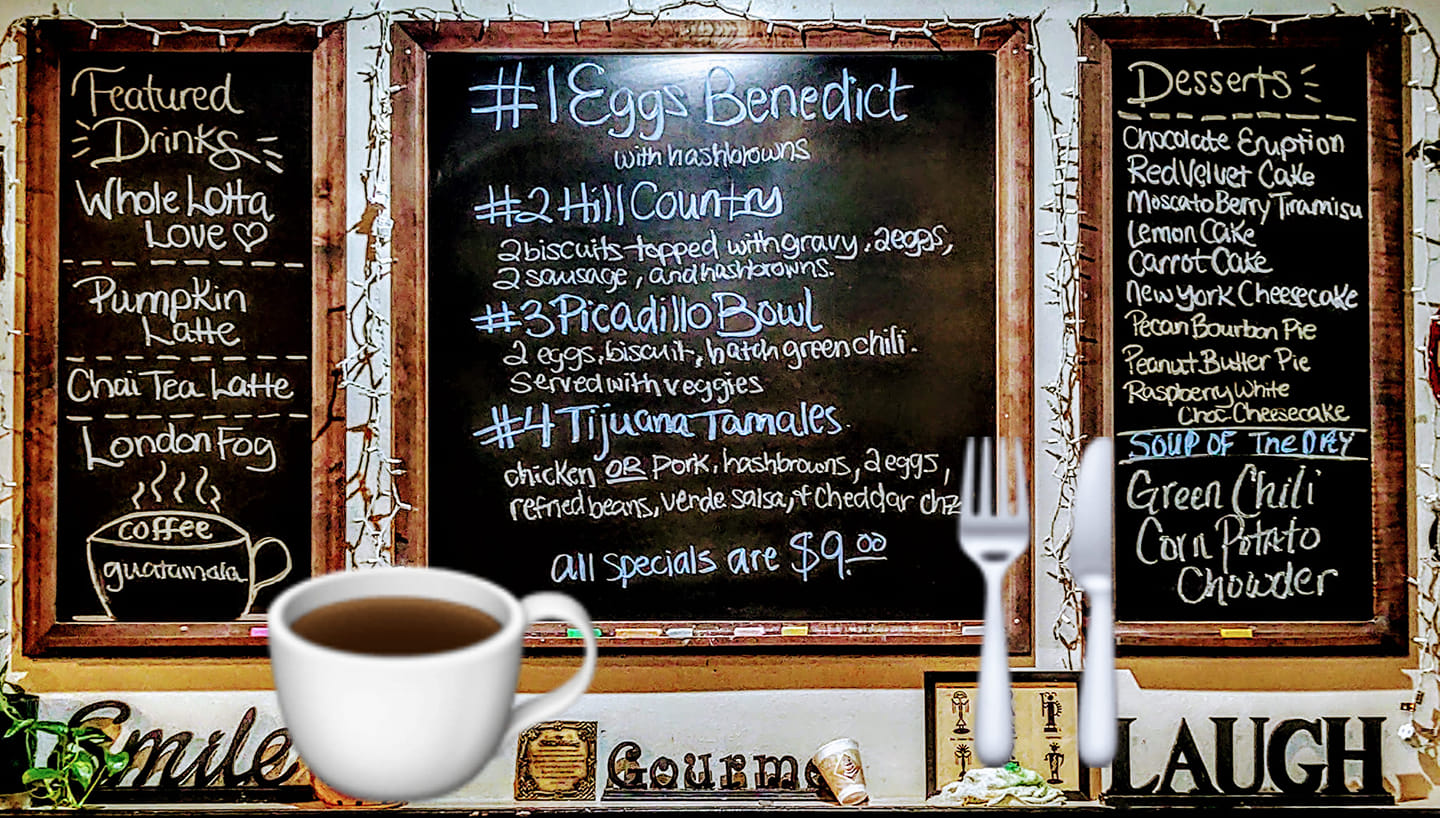 Featured
Drinks
Whole Lotta
Love
Pumpkin
Latte
Chai Tea Latte
London Fog
coffee
guatamala
#1 Eggs Benedict
with hashbrowns
#2 Hill Country
2 biscuits topped with gravy, 2 eggs,
2 sausage, and hashbrowns.
#3 Picadillo Bowl
2 eggs, biscuit, hatch green chili.
Served with veggies
#4 Tijuana Tamales.
chicken OR pork, hashbrowns, 2 eggs,
refried beans, verde salsa, & cheddar chz
all specials are $9.00
Desserts
Chocolate Eruption
Red Velvet Cake
Moscato Berry Tiramisu
Lemon Cake
Carrot Cake
New York Cheesecake
Pecan Bourbon Pie
Peanut Butter Pie
Raspberry White
Choc Cheesecake
SOUP OF The DAY
Green Chili
Corn Potato
Chowder
Smile
Gourme
LAUGH